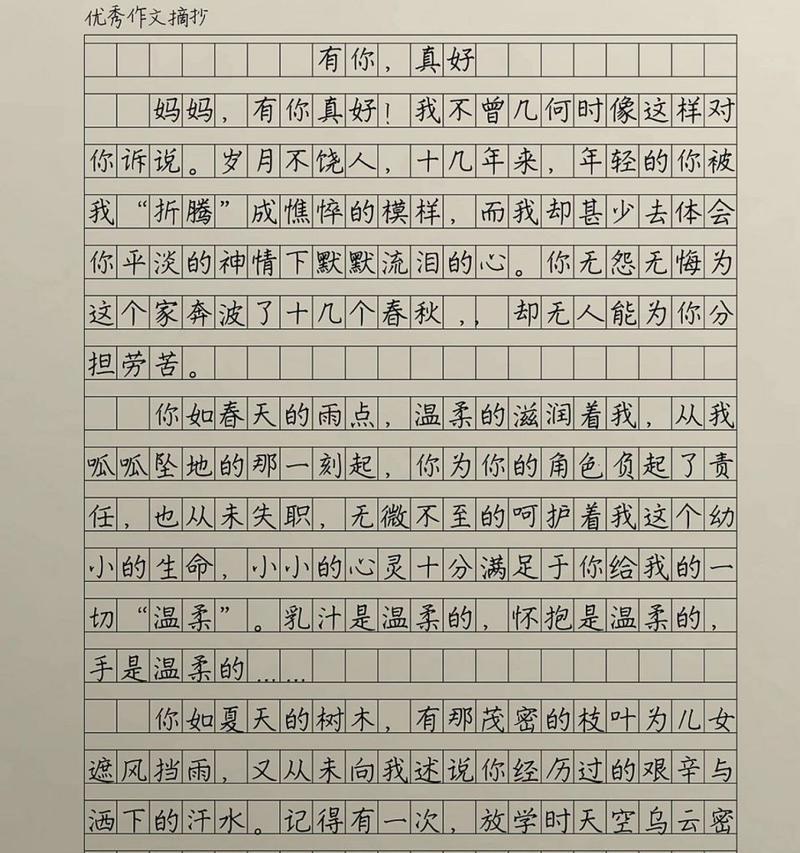 优秀作文摘抄
有你，真好
妈妈，有你真好！我不曾几何时像这样对
你诉说。岁月不饶人，十几年来，年轻的你被
我“折腾”成憔悴的模样，而我却甚少去体会
你平淡的神情下默默流泪的心。你无怨无悔为
这个家奔波了十几个春秋，，却无人能为你分
担劳苦。
你如春天的雨点，温柔的滋润着我，从我
呱呱坠地的那一刻起，你为你的角色负起了责
任，也从未失职，无微不至的呵护着我这个幼
小的生命，小小的心灵十分满足于你给我的一
切“温柔”。乳汁是温柔的，怀抱是温柔的，
手是温柔的……
你如夏天的树木，有那茂密的枝叶为儿女
遮风挡雨，又从未向我述说你经历过的艰辛与
洒下的汗水。记得有一次，放学时天空乌云密